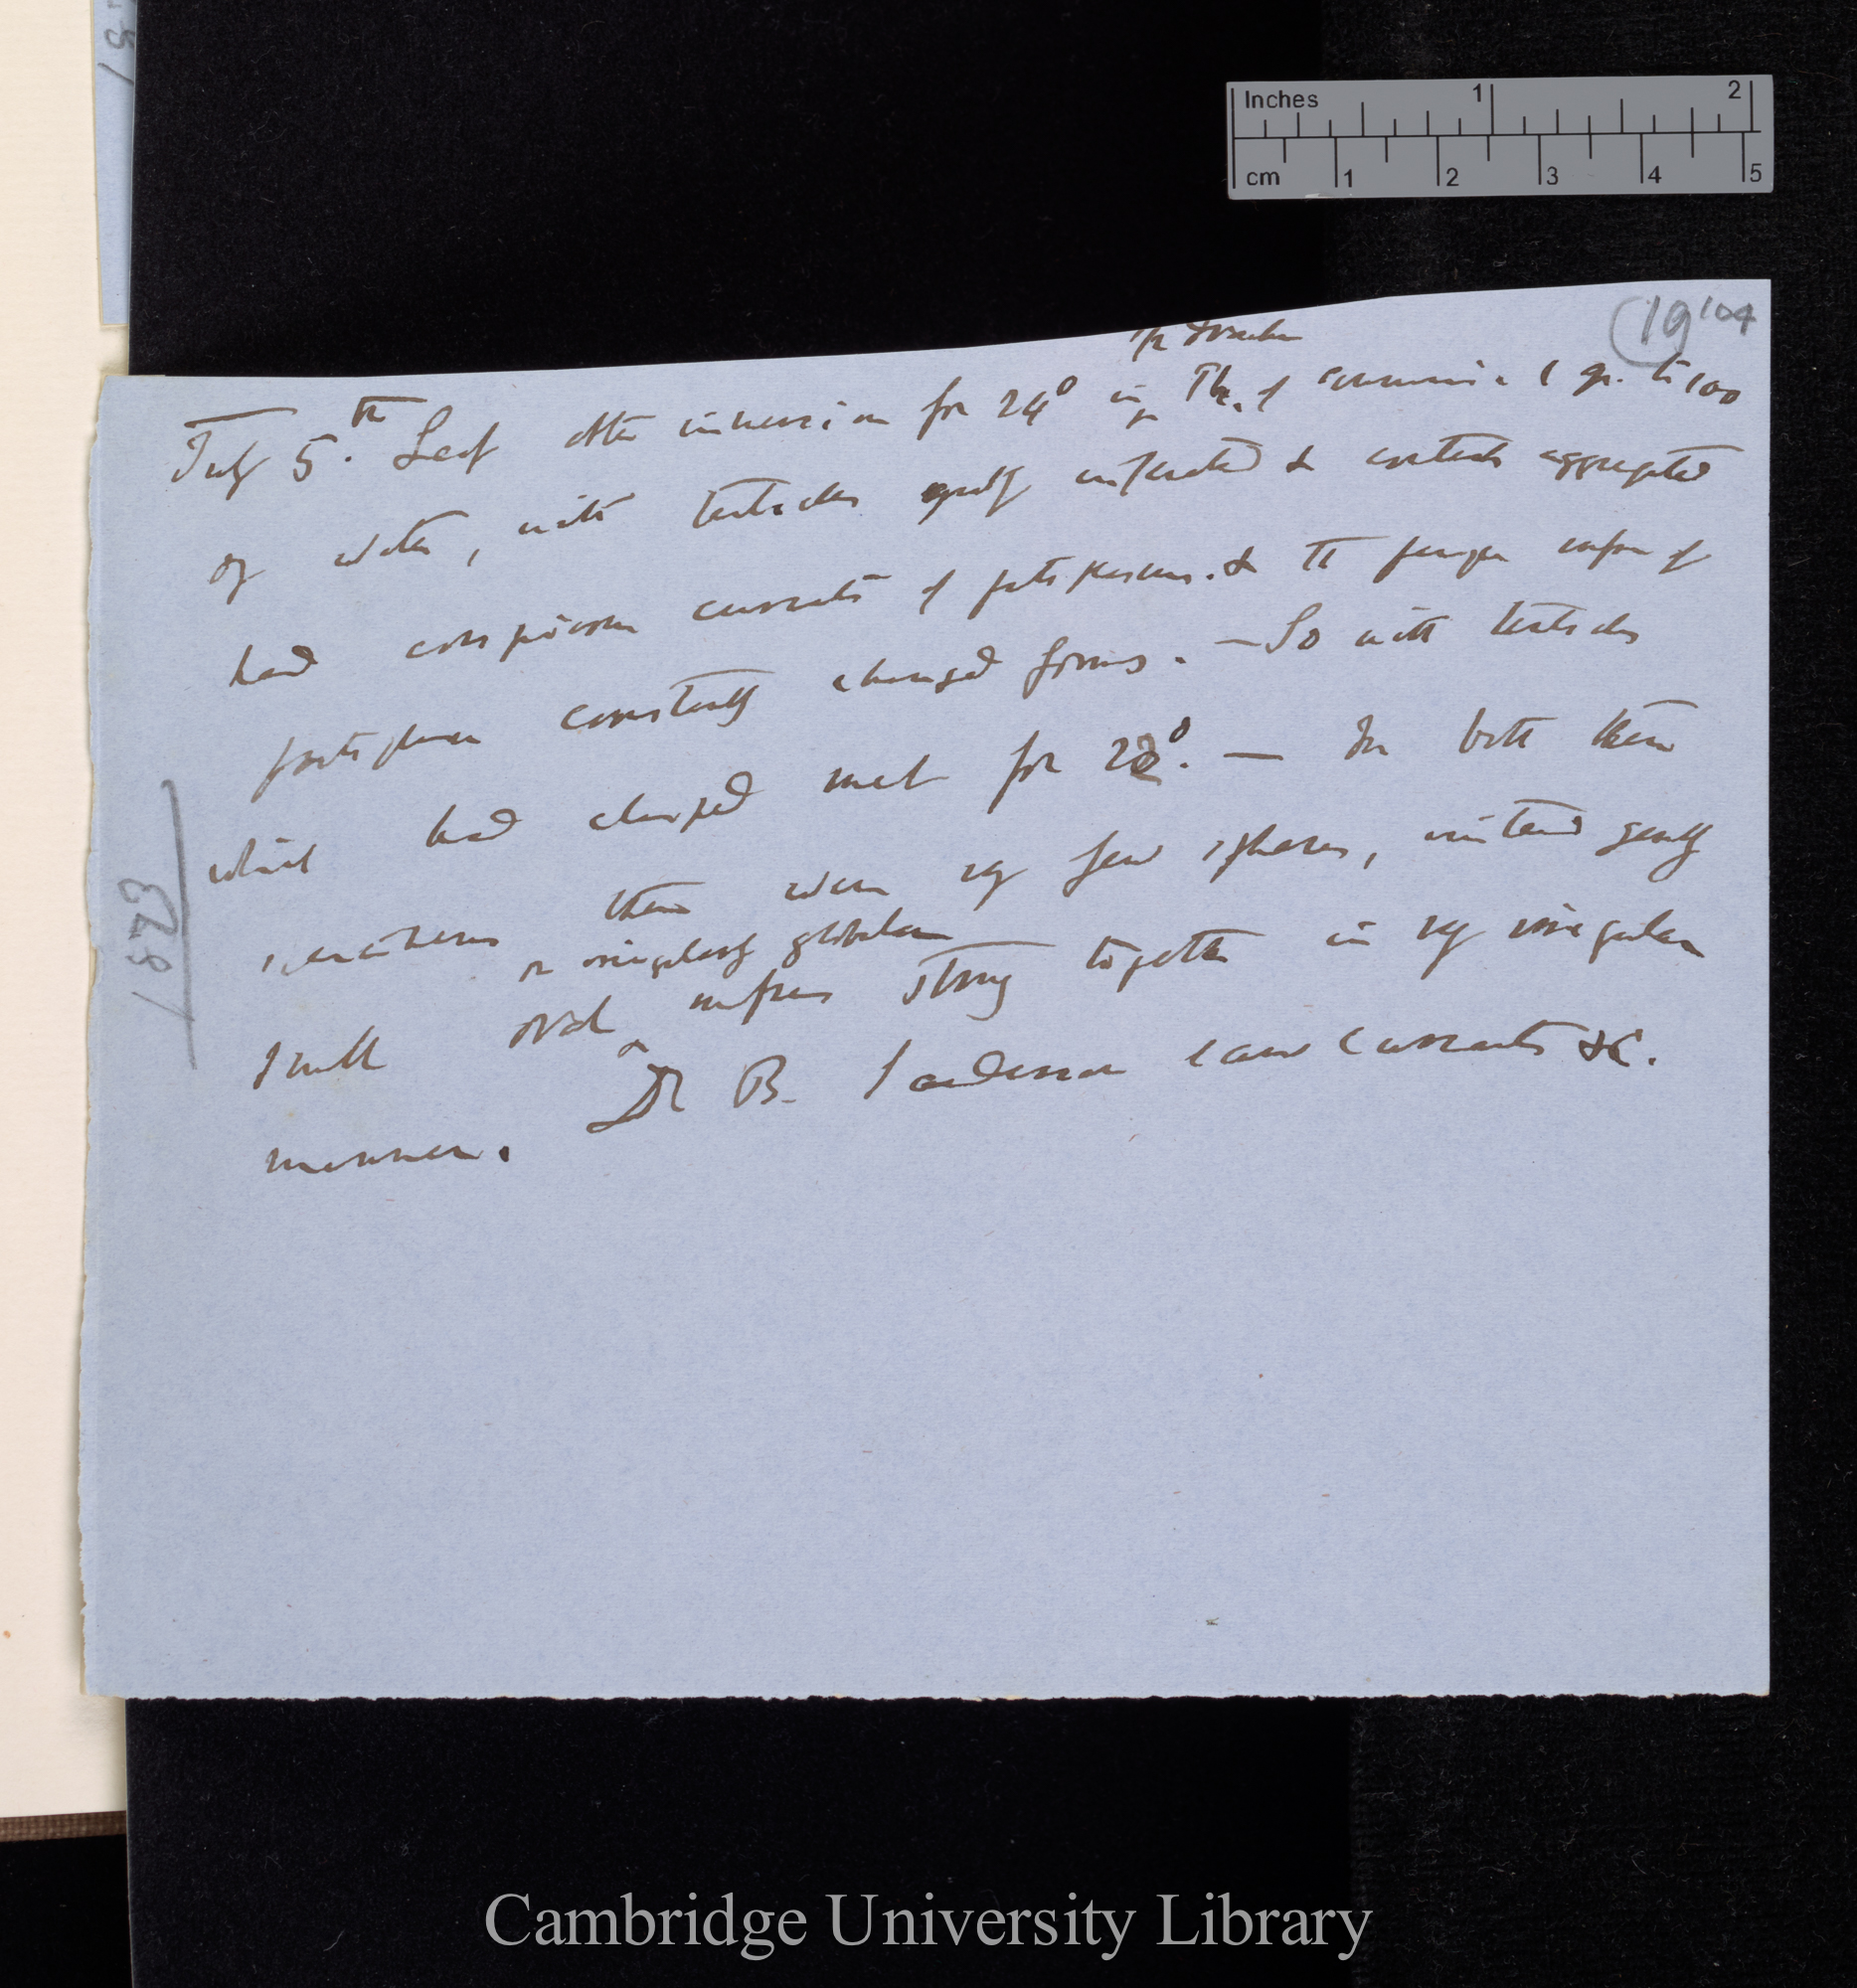 Inches 1 2
cm 1 2 3 4 5
19 104
July 5.th Leaf after immersion for 24° in of Ammonia 1 gr. to 100
of water, with tentacles greatly inflected & contents aggregated
had conspicuous currents of protoplasm. & the of
protoplasm constantly changed forms. — So with tentacles
which had clasped meat for 22°. — In both these
there were very few spheres, instead
or irregularly globular
small oval masses strung together in very irregular
manner. Dr B. Sanderson saw currents &c.
1873
Cambridge University Library